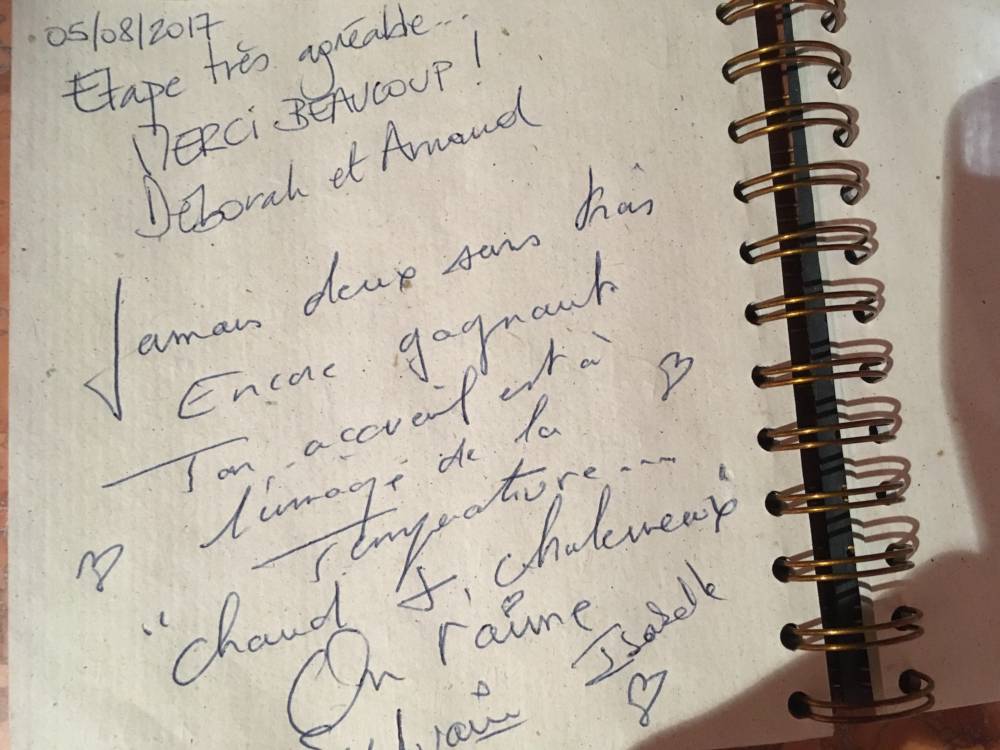 05/08/2017
Etape très agréable...
MERCi BEAUCOUP !
Déborah et Arnaud
Jamais deux sans trois
Encore gagnants
Ton accueil est à
l'image de la
Température ...
"Chaud & chaleureux"
On t'aime
Isabelle